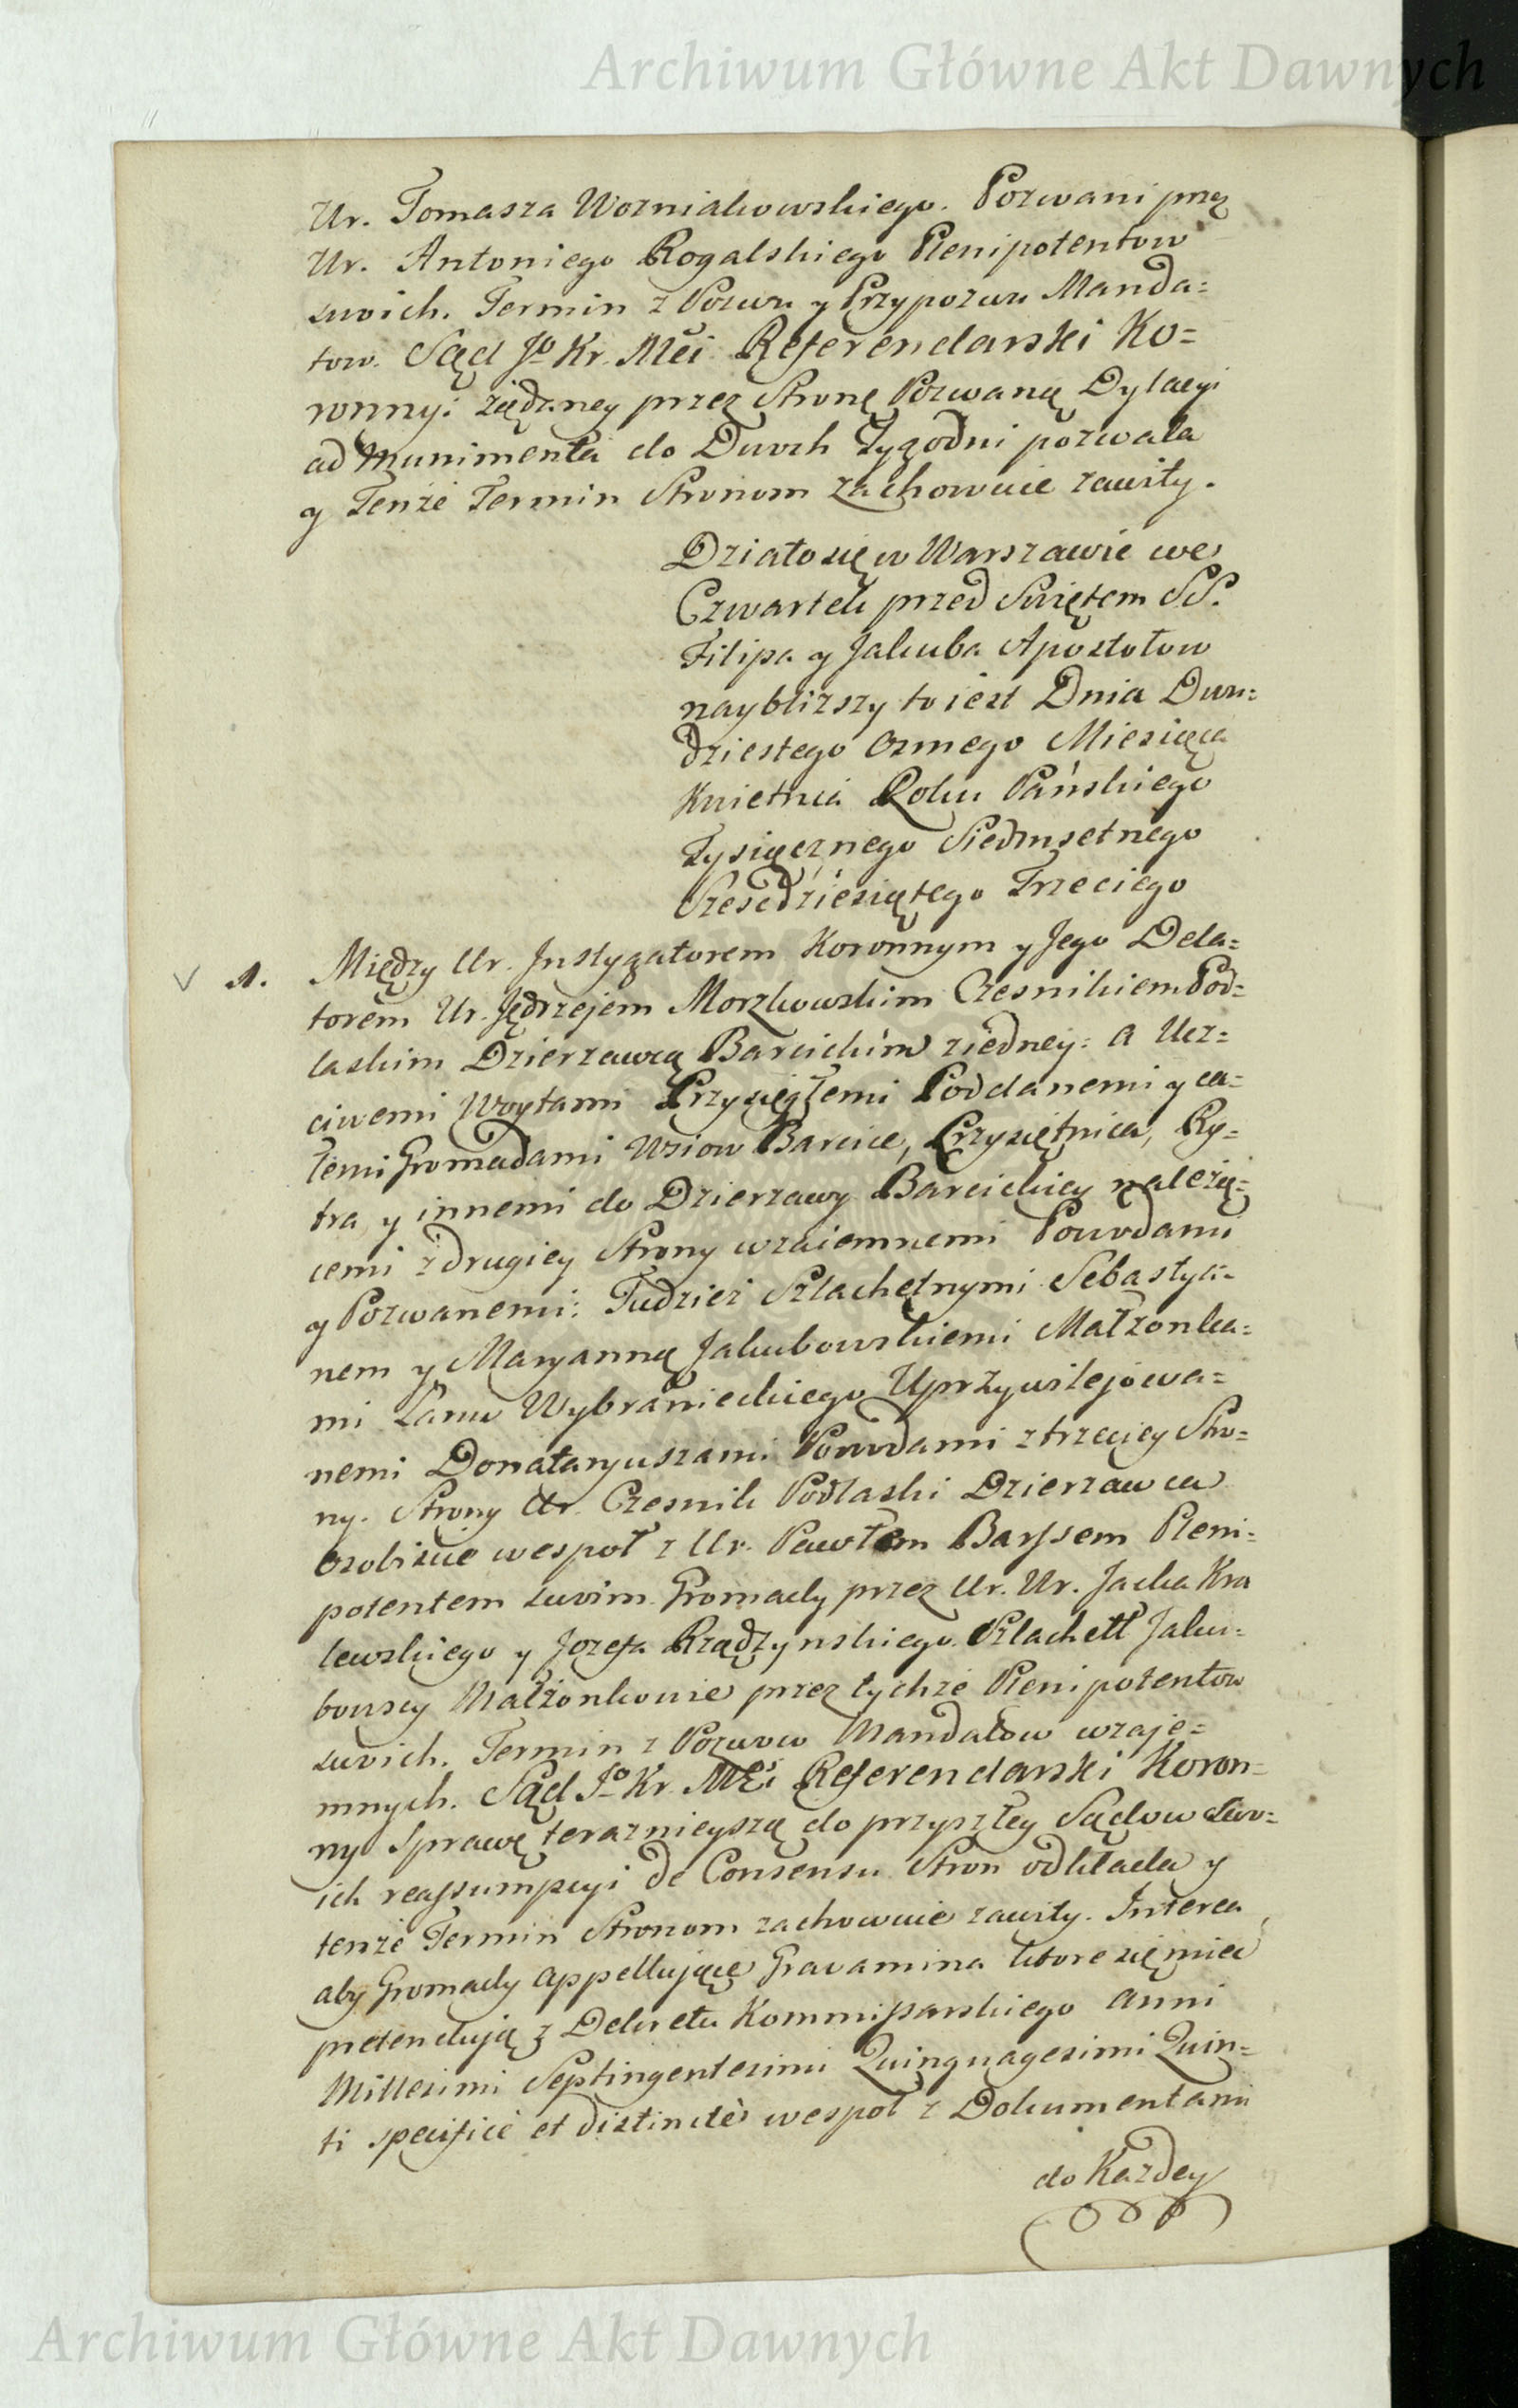 Archiwum Główne Akt Dawnych
Ur. Tomasza Wozniakowskiego. Pozwani przez
Ur. Antoniego Rogalskiego Plenipotentow
swoich. Termin z Pozwu y Przypozwu Manda=
tow. Sąd Jo Kr. Mci Referendarski Ko=
ronny: żądaney przez Stronę Pozwaną Dylacyi
ad Munimenta do Dwoch Tygodni pozwala
y Tenże Termin Stronom zachowuie zawity.
Działo się w Warszawie we
Czwartek przed Swiętem SS.
Filipa y Jakuba Apostołow
nayblizszy to iest Dnia Dwu=
dziestego osmego Miesiąca
Kwietnia Roku Pańskiego
Tysiącznego Siedmsetnego
Szesédziesiątego Trzeciego
1. Między Ur. Instygatorem Koronnym y Jego Dela=
torem Ur. Jędrzejem Morzkowskim Czesnikiem Pod=
laskim Dzierzawcą Barcickim z iedney: a Ucz=
ciwemi Woytami Przysięgłemi Poddanemi y ca=
łemi Gromadami Wsiow Barcice, Przysietnica, Ry=
tra, y innemi do Dzierzawy Barcickiey należą=
cemi z drugiey Strony wzaiemnemi Powodami
y Pozwanemi: Tudzież Szlachetnymi Sebastya=
nem y Maryanną Jakubowskiemi Małżonka=
mi Łanu Wybranieckiego Uprzywilejowa=
nemi Donataryuszami Powodami z trzeciey Stro=
ny. Strony Ur. Czesnik Podlaski Dzierzawca
osobiscie wespoł z Ur. Pawłem Barssem Pleni=
potentem swoim Gromady przez Ur. Ur. Jacka Kra
lewskiego y Jozefa Rządzynskiego. Szlachett Jaku=
bowscy Małżonkowie przez tychże Plenipotentow
swoich. Termin z Pozwow Mandatow wzaje=
mnych. Sąd Jo Kr. Mci Referendarski Koron=
ny Sprawę terazniejszą do przyszłey Sądow swo=
ich reassumpcyi de Consensu Stron odkłada y
tenże Termin Stronom zachowuie zawity. Interea
aby Gromady appellujące Gravamina ktore się mieć
pretendują z Dekretu Kommissarskiego anni
Millesimi Septingentesimi Quinquagesimi Quin=
ti specificè et distinctè wespoł z Dokumentami
do Kazdey
Archiwum Główne Akt Dawnych